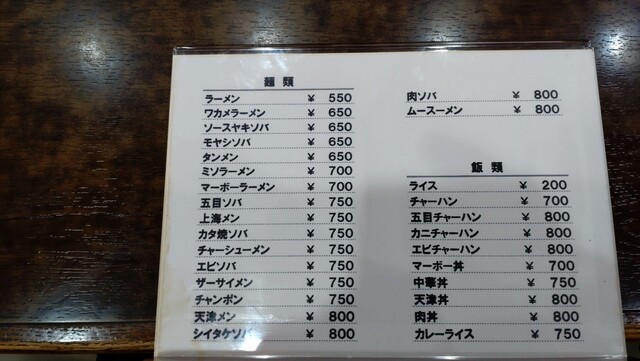 麺類
ラーメン ¥ 550
ワカメラーメン ¥ 650
ソースヤキソバ ¥ 650
モヤシソバ ¥ 650
タンメン ¥ 650
ミソラーメン ¥ 700
マーボーラーメン ¥ 700
五目ソバ ¥ 750
上海メン ¥ 750
カタ焼ソバ ¥ 750
チャーシューメン ¥ 750
エビソバ ¥ 750
ザーサイメン ¥ 750
チャンポン ¥ 750
天津メン ¥ 800
シイタケソバ ¥ 800
肉ソバ ¥ 800
ムースーメン ¥ 800
飯類
ライス ¥ 200
チャーハン ¥ 700
五目チャーハン ¥ 800
カニチャーハン ¥ 800
エビチャーハン ¥ 800
マーボー丼 ¥ 700
中華丼 ¥ 750
天津丼 ¥ 800
肉丼 ¥ 800
カレーライス ¥ 750